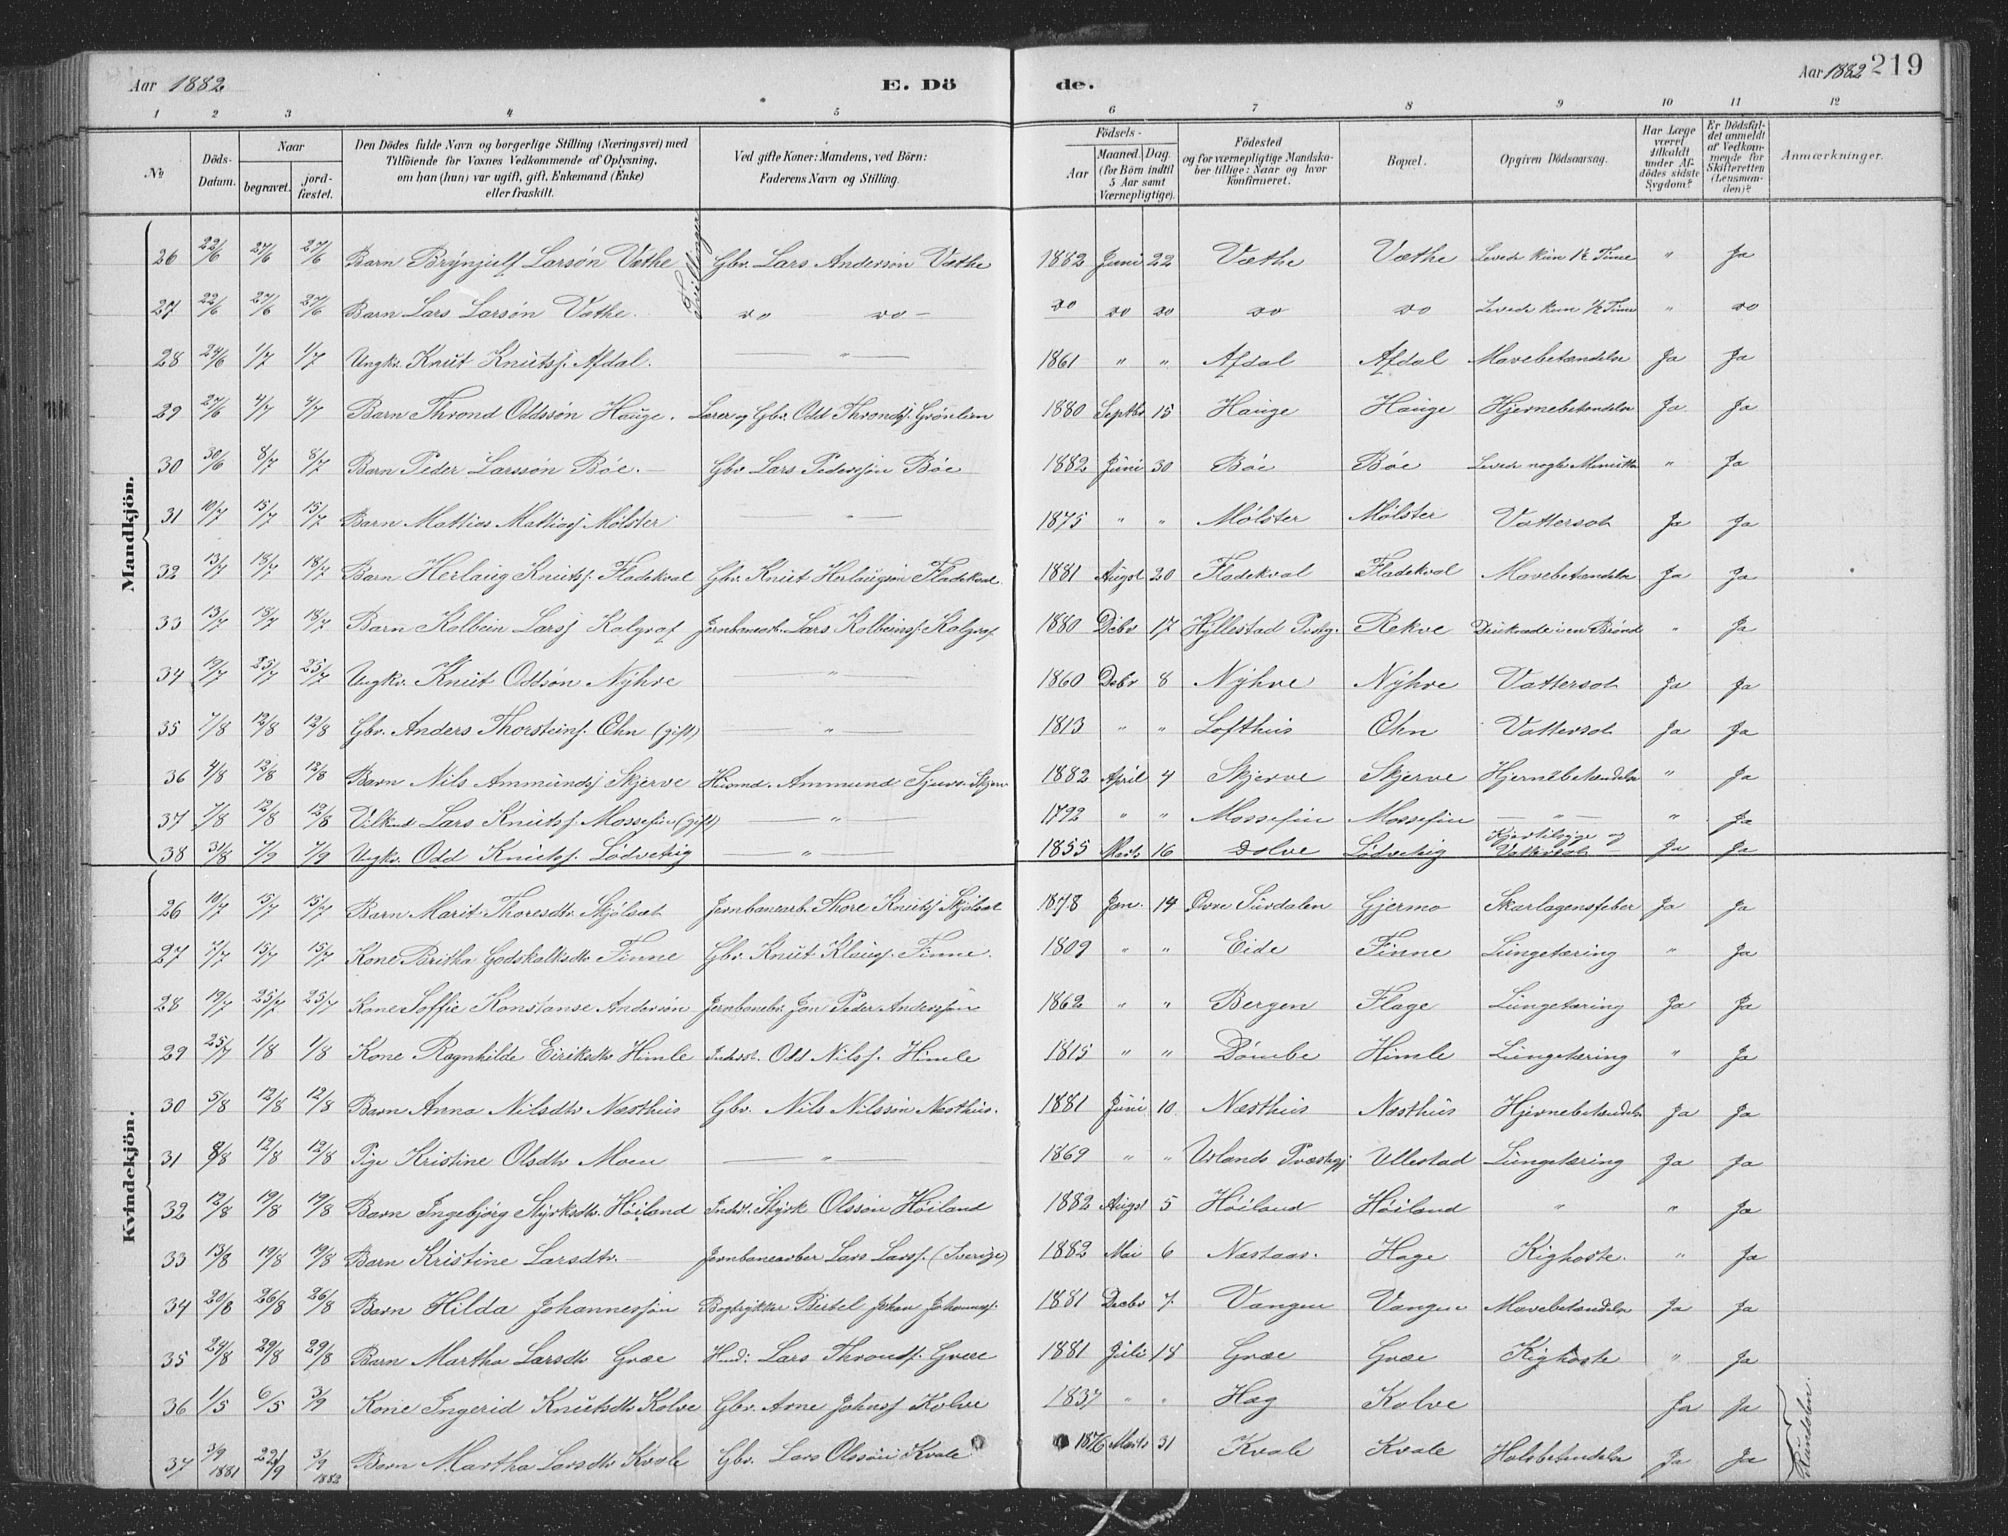 Aar 1882 E. Dö de. Aar 1882 219
1 2 3 4 5 6 7 8 9 10 11 12
No Döds-Datum. Naar begravet. jord-fæstet. Den Dödes fulde Navn og borgerlige Stilling (Næringsvei) med Tilföiende for Voxnes Vedkommende af Oplysning, om han (hun) var ugift, gift, Enkemand (Enke) eller fraskilt. Ved gifte Koner: Mandens, ved Börn: Faderens Navn og Stilling. Födsels- Aar Maaned. Dag. (for Börn indtil 5 Aar samt Værnepligtige). Födested og for værnepligtige Mandskaber tillige: Naar og hvor konfirmeret. Bopæl. Opgiven Dödsaarsag. Har Læge været tilkaldt under Afdödes sidste Sygdom? Er Dödsfaldet anmeldt af Vedkommende for Skifteretten (Lensmanden)? Anmærkninger.
Mandkjön.
26 22/6 27/6 27/6 Barn Brynjulf Larsön Væthe Tvillinger Gbr. Lars Andersön Væthe 1882 Juni 22 Væthe Væthe Levede kun 1½ Time " Ja
27 22/6 27/6 27/6 Barn Lars Larsön Væthe. do do - do do do do do Levede kun ½ Time " do
28 24/6 1/7 1/7 Ungkr. Knut Knutsf. Afdal. " 1861 " " Afdal Afdal Mavebetændelse Ja Ja
29 27/6 4/7 4/7 Barn Thrond Oddsön Hauge. Lærer og Gbr. Odd Throndsf. Grönlien 1880 Septbr 15 Hauge Hauge Hjernebetændelse Ja Ja
30 30/6 8/7 8/7 Barn Peder Larssön Böe. Gbr Lars Pedersön Böe 1882 Juni 30 Böe Böe Levede nogle Minutter " Ja
31 10/7 15/7 15/7 Barn Mattias Mattiasf Mölster " 1875 " " Mölster Mölster Vattersot Ja Ja
32 13/7 18/7 18/7 Barn Herlaug Knutsf. Fladekval Gbr. Knut Herlaugsön Fladekval 1881 Augst 20 Fladekval Fladekval Mavebetændelse Ja Ja
33 13/7 18/7 18/7 Barn Kolbein Larsf Kalgraf Jernbanearb. Lars Kolbeinsf. Kalgraf 1880 Debr 17 Hyllestad Prstg. Rekve Druknede i en Brönd " Ja
34 19/7 25/7 25/7 Ungkr. Knut Oddsön Nyhre " 1860 Debr 8 Nyhre Nyhre Vattersot Ja Ja
35 7/8 12/8 12/8 Gbr. Anders Thorsteinsf. Ohn (gift) " 1813 " " Lofthus Ohn Vattersot Ja Ja
36 4/8 12/8 12/8 Barn Nils Ammundsf Skjerve Husmd. Ammund Sjurs. Skjerv 1882 April 4 Skjerve Skjerve Hjernebetændelse " Ja
37 7/8 12/8 12/8 Vilkmd Lars Knutsf. Mossefin (gift) " 1792 " " Mossefin Mossefin " " Ja
38 31/8 7/9 7/9 Ungkr. Odd Knutsf. Lödvehig " 1855 Marts 16 Dolve Lödvehig Hjertesyge og Vattersot Ja Ja
Kvindekjön.
26 10/7 15/7 15/7 Barn Marit Thoresdtr Skjölsæt Jernbanearb. Thore Knutsf Skjölsæt 1878 Jan. 14 Övre Surdalen Gjermo Skarlagensfeber Ja Ja
27 7/7 15/7 15/7 Kone Britha Godskalksdtr Finne Gbr. Knut Klausf. Finne. 1809 " " Eide Finne Lungetæring " Ja
28 19/7 25/7 25/7 Kone Soffie Konstanse Andersön Jernbanebr. Jon Peder Andersön 1862 " " Bergen Flage Lungetæring Ja Ja
29 25/7 1/8 1/8 Kone Ragnhilde Eiriksdtr Himle Indst. Odd Nilsf. Himle 1815 " " Dömbe Himle Lungetæring " Ja
30 5/8 12/8 12/8 Barn Anna Nilsdtr Næsthus Gbr. Nils Nilssön Næsthus. 1881 Juni 10 Næsthus Næsthus Hjernebetændelse Ja Ja
31 8/8 12/8 12/8 Pige Kristine Olsdtr Moen " 1869 " " Urlands Præstegj Ullestad Lungetæring Ja Ja
32 12/8 19/8 19/8 Barn Ingebjörg Styrksdtr. Höiland Indst. Styrk Olssön Höiland 1882 Augst 5 Höiland Höiland " " Ja
33 13/8 19/8 19/8 Barn Kristine Larsdtr. Jernbanearber Lars Larsf. (Sverige) 1882 Mai 6 Næstaas. Hage Kighoste. " Ja
34 20/8 26/8 26/8 Barn Hilda Johannessön Bogtrykker Bertel Johan Johannesf. 1881 Decbr 7. Vangen Vangen Mavebetændelse Ja Ja
35 24/8 29/8 29/8 Barn Martha Larsdtr Græe Husd: Lars Throndsf. Græe 1881 Juli 18 Græe Græe Kighoste " Ja
36 1/5 6/5 3/9 Kone Ingerid Knutsdtr Kolve Gbr. Arne Johnsf Kolve 1837 " " Hæg Kolve Ja Ja
37 3/9 1881 22/9 3/9 1882 Barn Martha Larsdtr Kvale Gbr. Lars Olssön Kvale 1876 Marts 31 Kvale Kvale Halsbetændelse Ja Ja